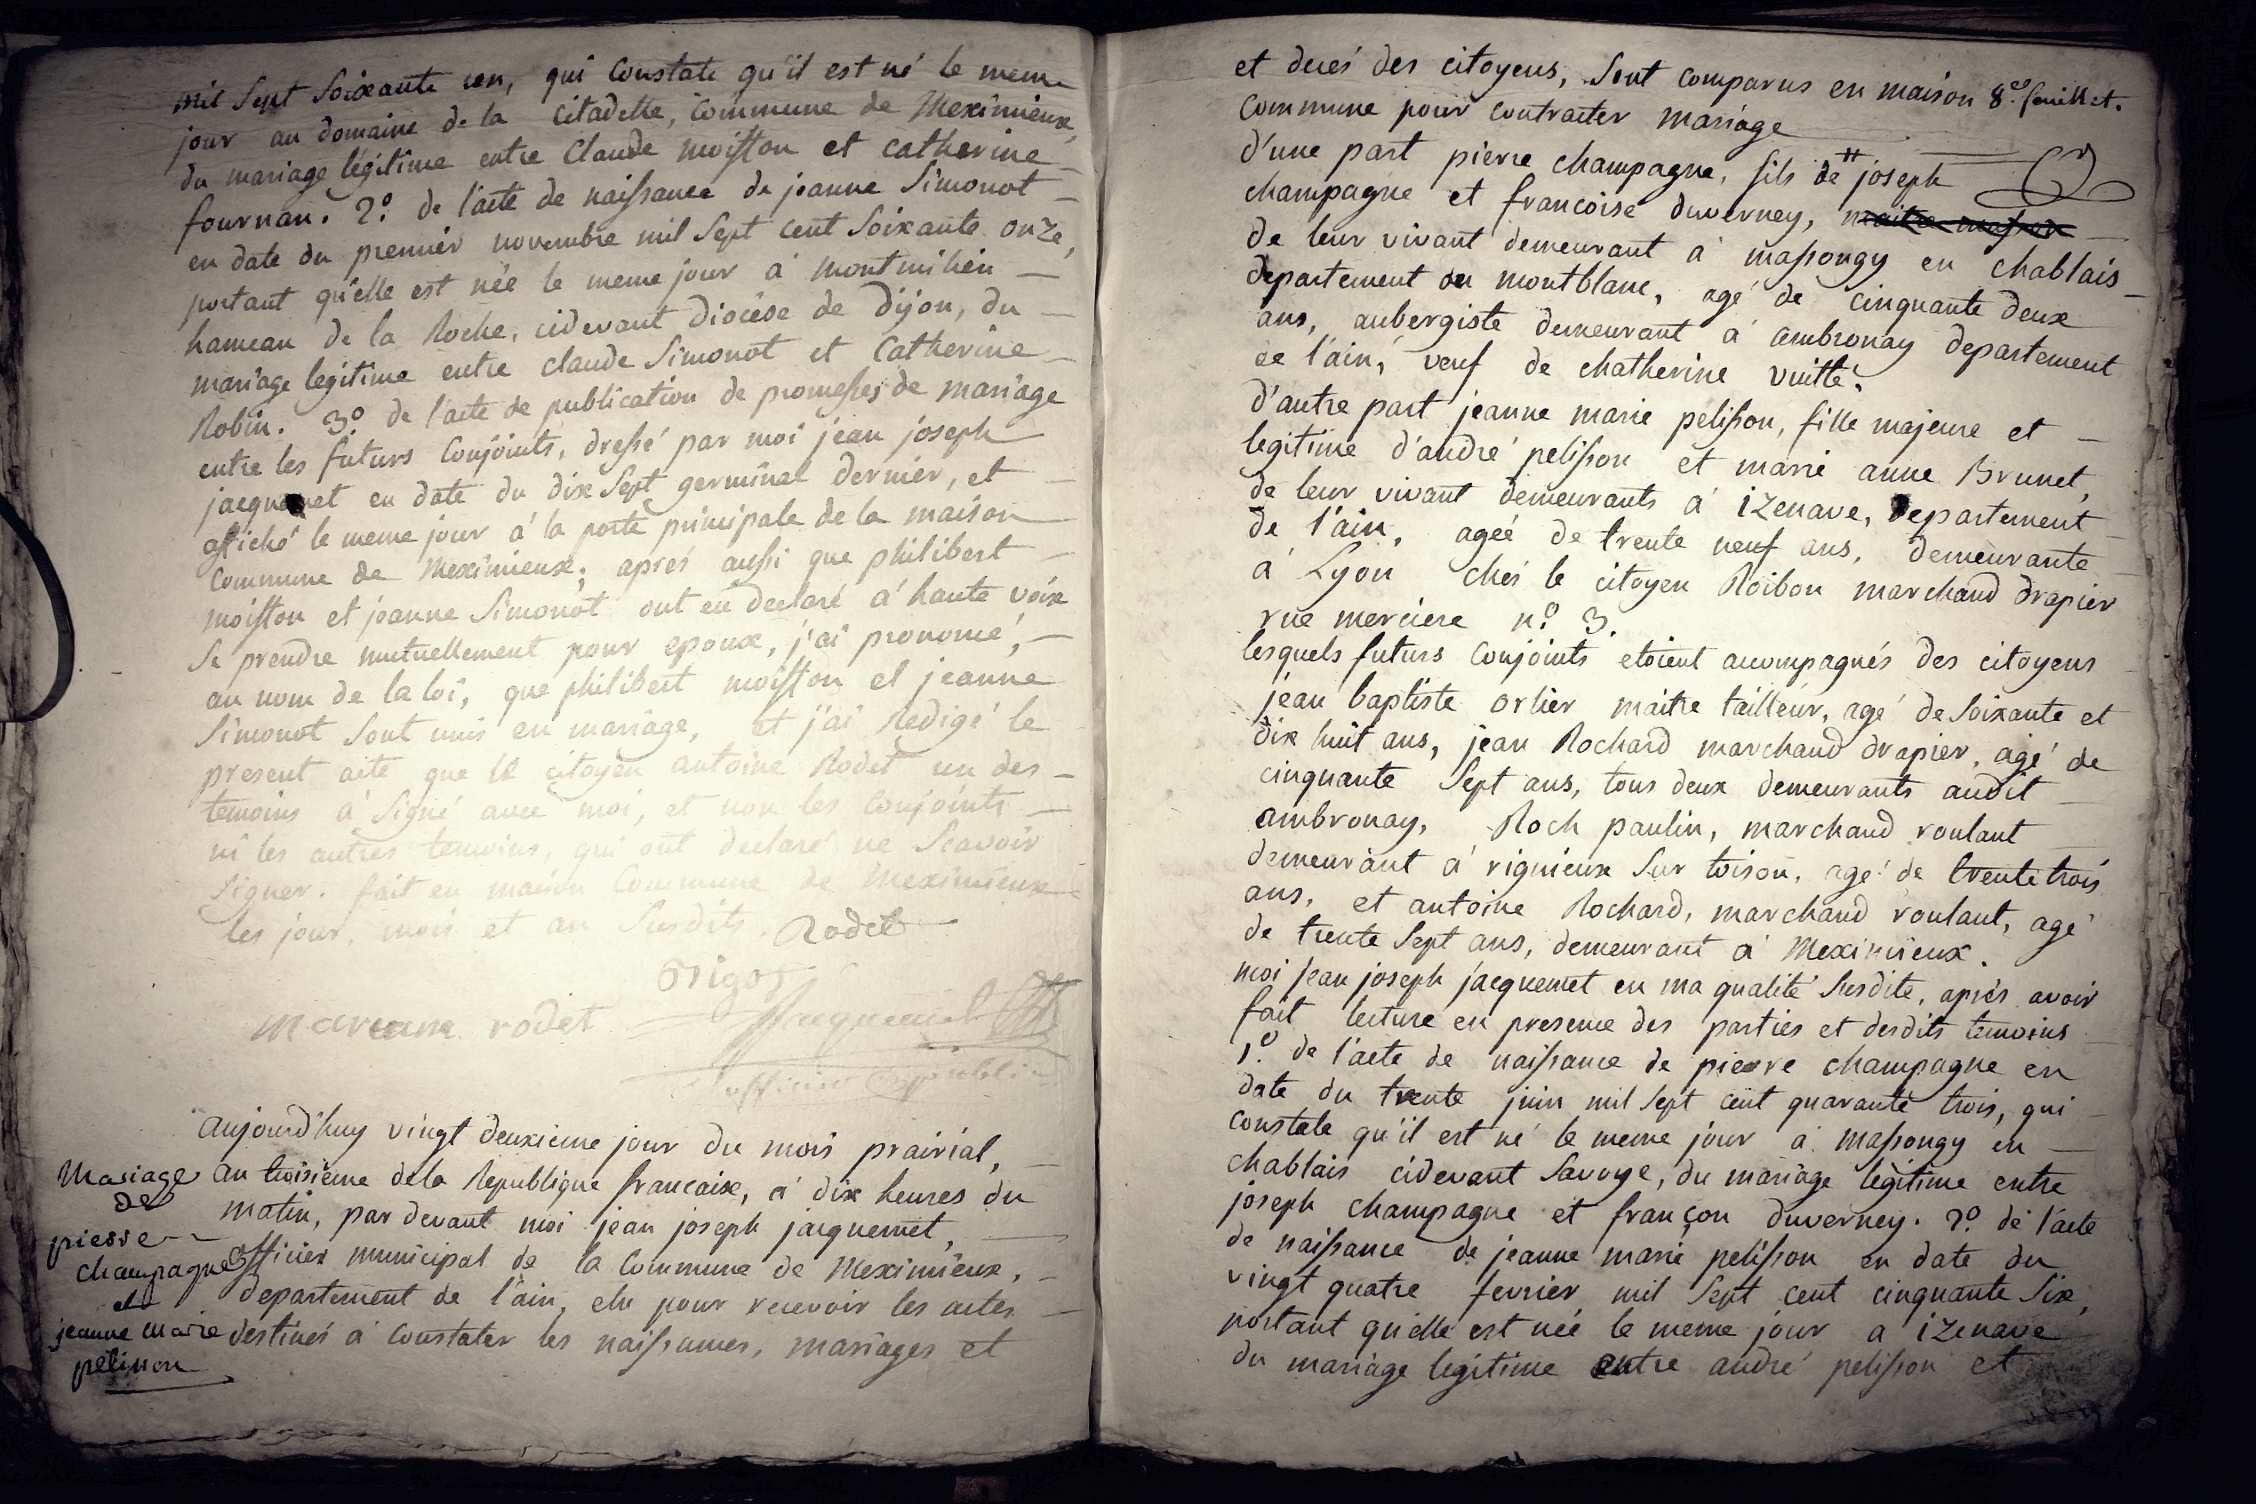 mil Sept Soixante un, qui Constate qu'il est né le meme
jour au domaine de la Citadelle, Commune de Meximieux,
du mariage légitime entre Claude moisson et catherine
fournan. 2.º de l'acte de naissance de jeanne Simonot
en date du premier novembre mil Sept cent Soixante onze,
portant qu'elle est née le meme jour à montmilien
hameau de la Roche, cidevant Diocèse de Dijon, du
mariage legitime entre claude Simonot et Catherine
Robin. 3º de l'acte de publication de promesses de mariage
entre les futurs Conjoints, dressé par moi jean joseph
jacquemet en date du dix Sept germinal dernier, et
affiché le meme jour à la porte principale de la maison
Commune de Meximieux; aprés aussi que philibert
moisson et jeanne Simonot ont eu declaré à haute voix
se prendre mutuellement pour epoux, j'ai prononcé,
au nom de la loi, que philibert moisson et jeanne
Simonot Sont unis en mariage, et j'ai Redigé le
present acte que le citoyen antoine Rodet un des
temoins à Signé avec moi, et non les Conjoints
ni les autres temoins, qui ont declaré ne Scavoir
Signer. fait en maison Commune de Meximieux
les jour, mois et an Susdits. Rodet
marianne rodet Jacquemet
officier public
aujourd'huy vingt deuxieme jour du mois prairial,
an troisième de la Republique francaise, à dix heures du
matin, par devant moi jean joseph jacquemet,
officier municipal de la Commune de Meximieux,
departement de l'ain, elu pour recevoir les actes
destinés à Constater les naissances, mariages et
Mariage
de
pierre
champagne
et
jeanne marie
pelisson
8.e feuillet.
et decés des citoyens, Sont comparus en maison
Commune pour contracter mariage
d'une part pierre champagne, fils de joseph
champagne et francoise duverney, maitre masson
de leur vivant demeurant à massongy en chablais
departement du montblanc, agé de cinquante deux
ans, aubergiste demeurant à ambronay departement
de l'ain, veuf de chatherine vuitté,
d'autre part jeanne marie pelisson, fille majeure et
legitime d'andré pelisson et marie anne Brunet,
de leur vivant demeurants à izenave, departement
de l'ain, agée de trente neuf ans, demeurante
à Lyon chés le citoyen Roibon marchand drapier
rue merciere n.º 3.
lesquels futurs Conjoints etoient accompagnés des citoyens
jean baptiste orlier maitre tailleur, agé de Soixante et
dix huit ans, jean Rochard marchand drapier, agé de
cinquante Sept ans, tous deux demeurants audit
ambronay, Roch paulin, marchand roulant
demeurant à rignieux Sur toison, agé de trente trois
ans, et antoine Rochard, marchand roulant, agé
de trente Sept ans, demeurant à Meximieux.
moi jean joseph jacquemet en ma qualité Susdite, aprés avoir
fait lecture en presence des parties et desdits temoins
1.º de l'acte de naissance de pierre champagne en
date du trente juin mil Sept cent quarante trois, qui
constate qu'il est né le meme jour à massongy en
chablais cidevant Savoye, du mariage légitime entre
joseph champagne et françon duverney. 2.º de l'acte
de naissance de jeanne marie pelisson en date du
vingt quatre fevrier mil Sept cent cinquante Six,
portant qu'elle est née le meme jour a izenave
du mariage legitime entre andré pelisson et